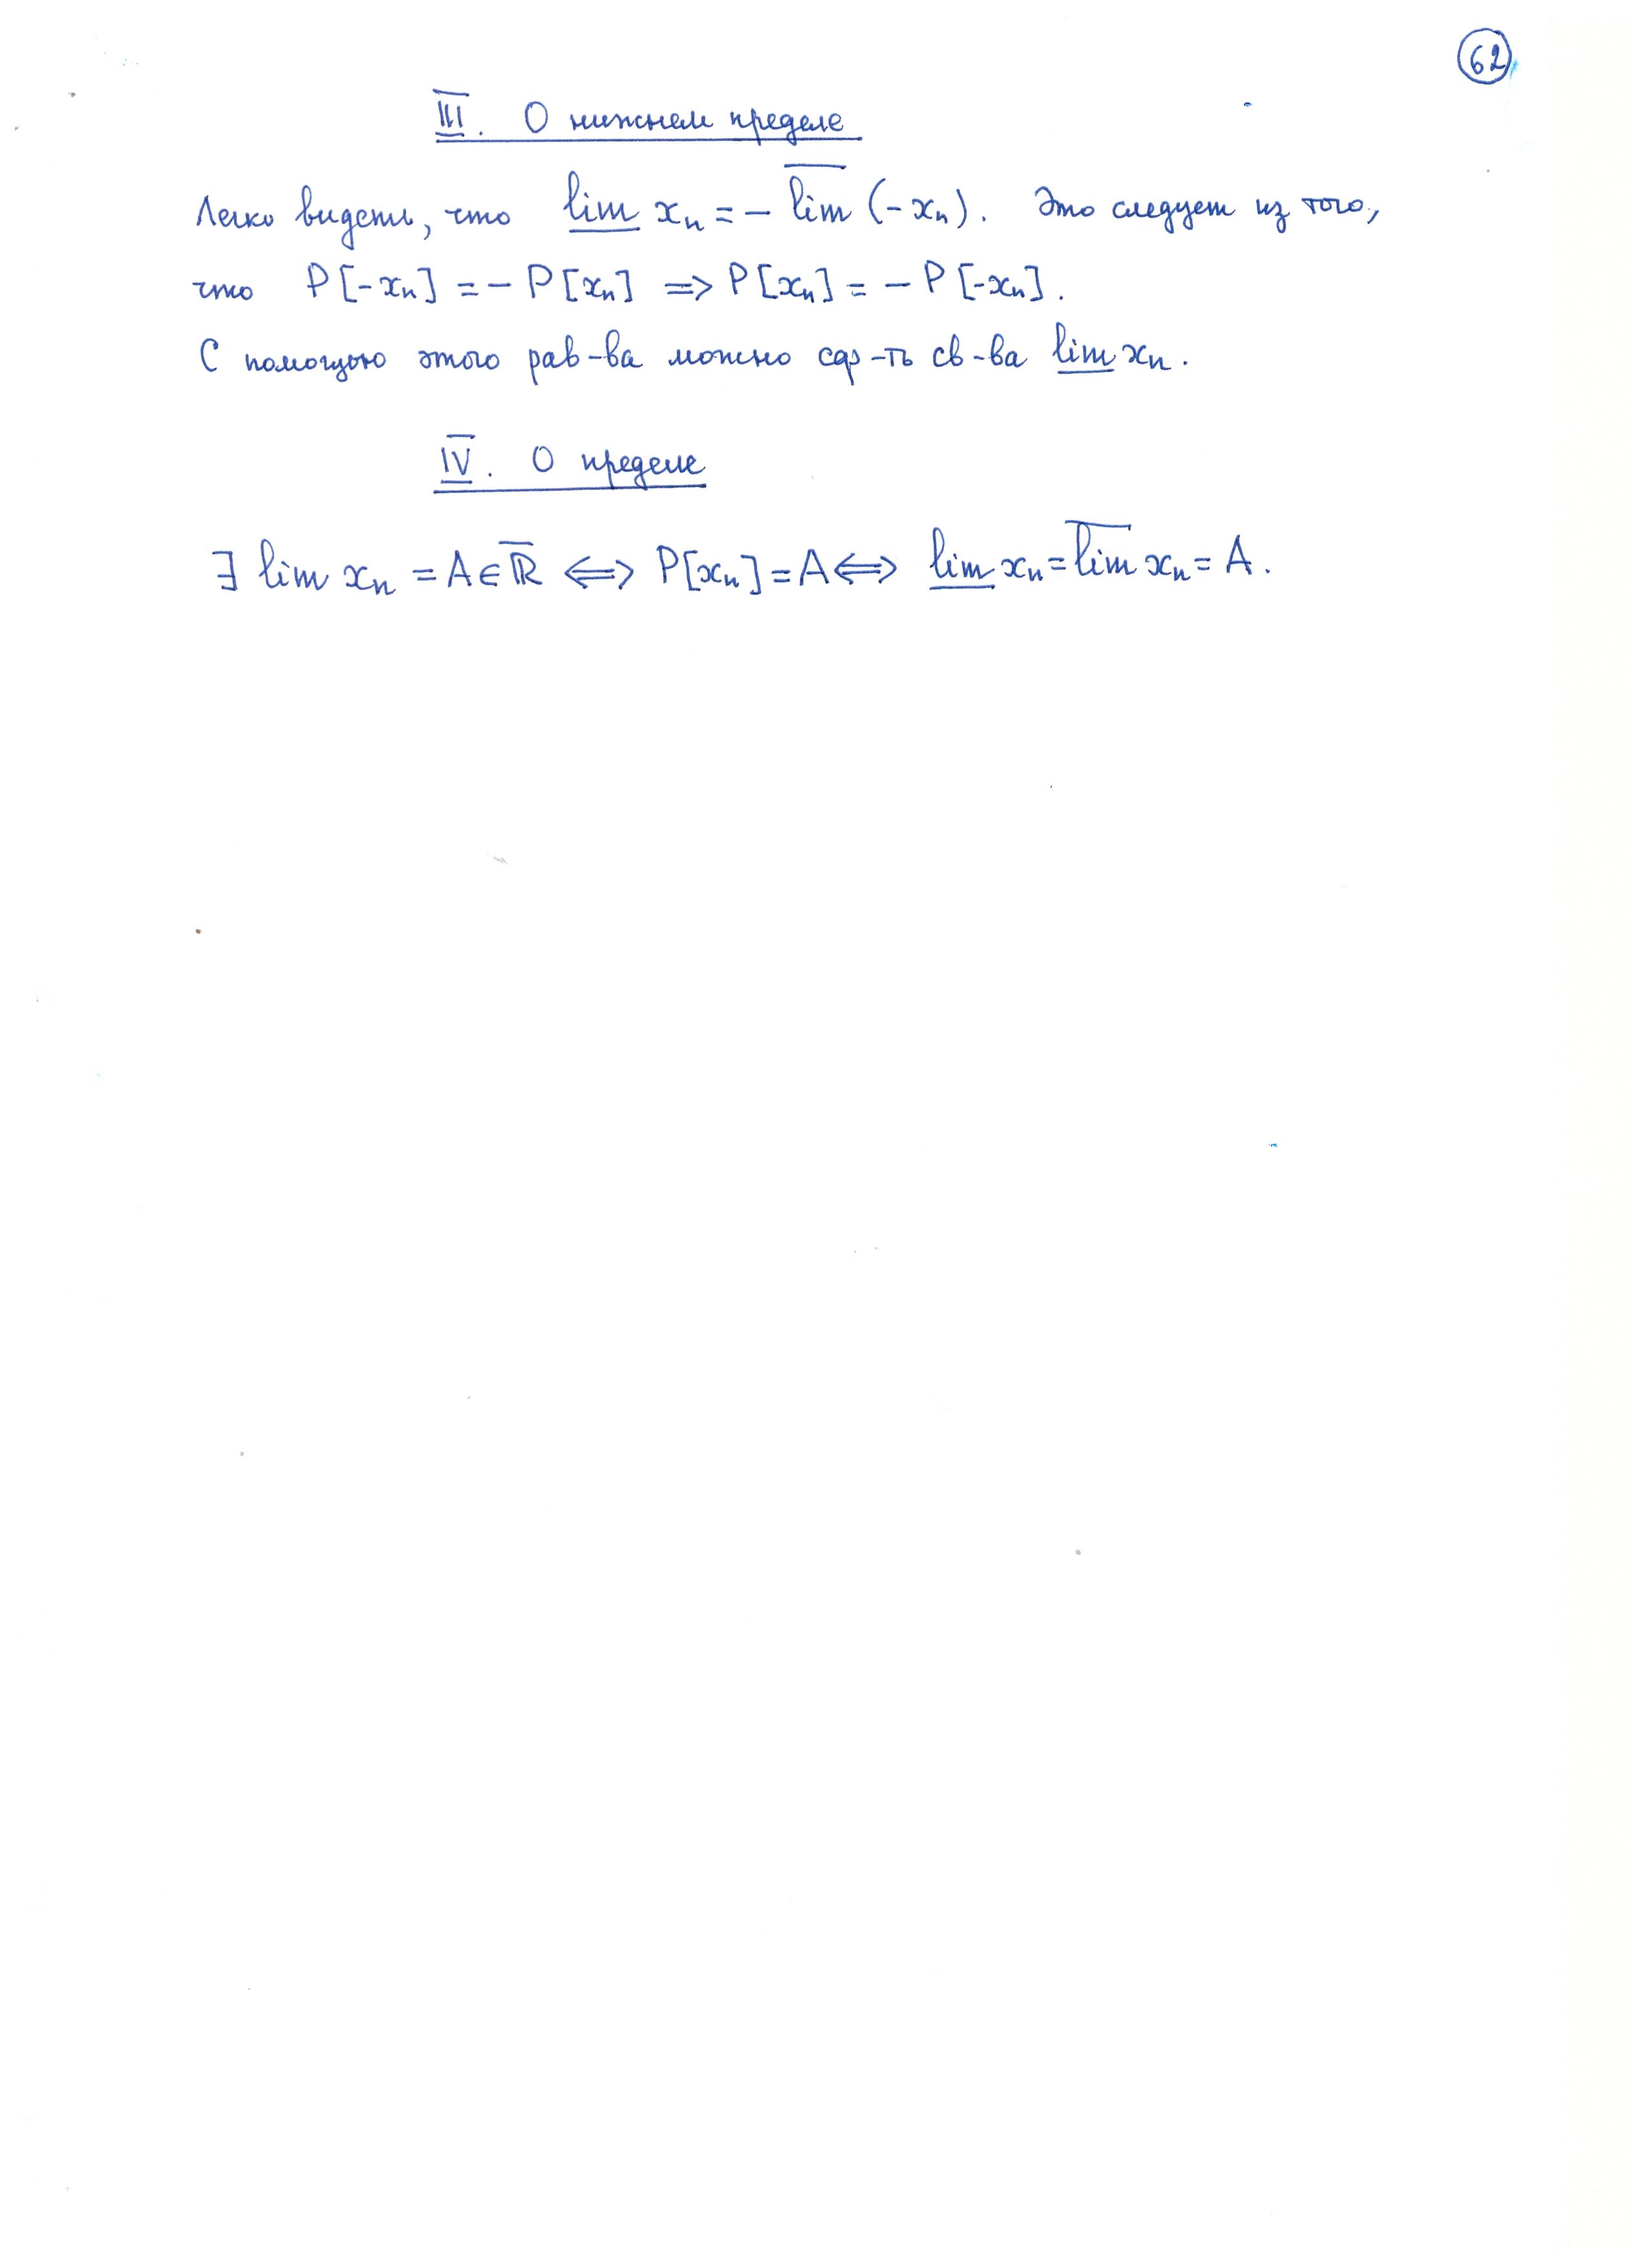 62
III. О нижнем пределе
Легко видеть, что lim̲ xₙ = – lim̅ (-xₙ). Это следует из того,
что P[-xₙ] = – P[xₙ] => P[xₙ] = – P[-xₙ].
С помощью этого рав-ва можно сдр-ть св-ва lim̲ xₙ.
IV. О пределе
∃ lim xₙ = A ∈ ℝ̅ <=> P[xₙ] = A <=> lim̲ xₙ = lim̅ xₙ = A.